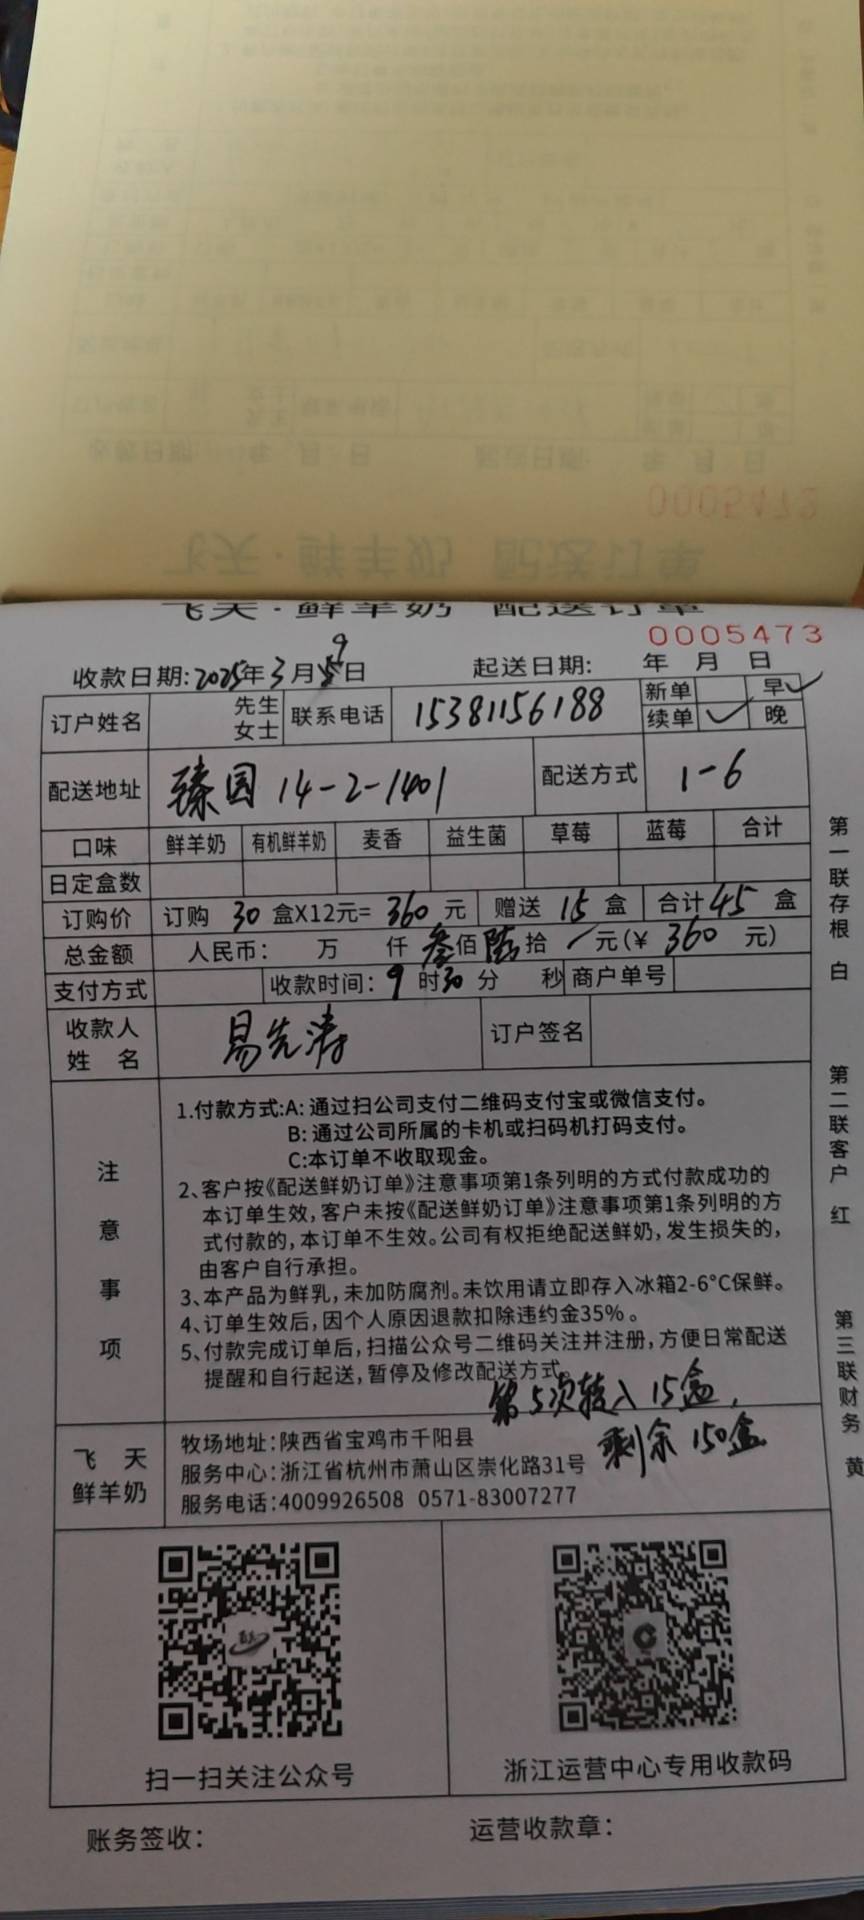 飞天·鲜羊奶 配送订单
0005473
收款日期:2025年3月9日 起送日期: 年 月 日
订户姓名 先生 女士 联系电话 15381156188 新单 早✓ 续单 ✓ 晚
配送地址 臻园 14-2-1401 配送方式 1-6
口味 鲜羊奶 有机鲜羊奶 麦香 益生菌 草莓 蓝莓 合计
日定盒数
订购价 订购 30 盒X12元= 360 元 赠送 15 盒 合计 45 盒
总金额 人民币: 万 仟 叁佰陆拾 / 元(¥ 360 元)
支付方式 收款时间: 9 时30分 秒 商户单号
收款人姓名 易先涛 订户签名
注意事项
1.付款方式:A:通过扫公司支付二维码支付宝或微信支付。
B:通过公司所属的卡机或扫码机打码支付。
C:本订单不收取现金。
2、客户按《配送鲜奶订单》注意事项第1条列明的方式付款成功的
本订单生效,客户未按《配送鲜奶订单》注意事项第1条列明的方
式付款的,本订单不生效。公司有权拒绝配送鲜奶,发生损失的,
由客户自行承担。
3、本产品为鲜乳,未加防腐剂。未饮用请立即存入冰箱2-6°C保鲜。
4、订单生效后,因个人原因退款扣除违约金35%。
5、付款完成订单后,扫描公众号二维码关注并注册,方便日常配送
提醒和自行起送,暂停及修改配送方式。
第5次转入15盒,
剩余150盒
飞天鲜羊奶
牧场地址:陕西省宝鸡市千阳县
服务中心:浙江省杭州市萧山区崇化路31号
服务电话:4009926508 0571-83007277
扫一扫关注公众号 浙江运营中心专用收款码
账务签收: 运营收款章:
第一联存根 白
第二联客户 红
第三联财务 黄